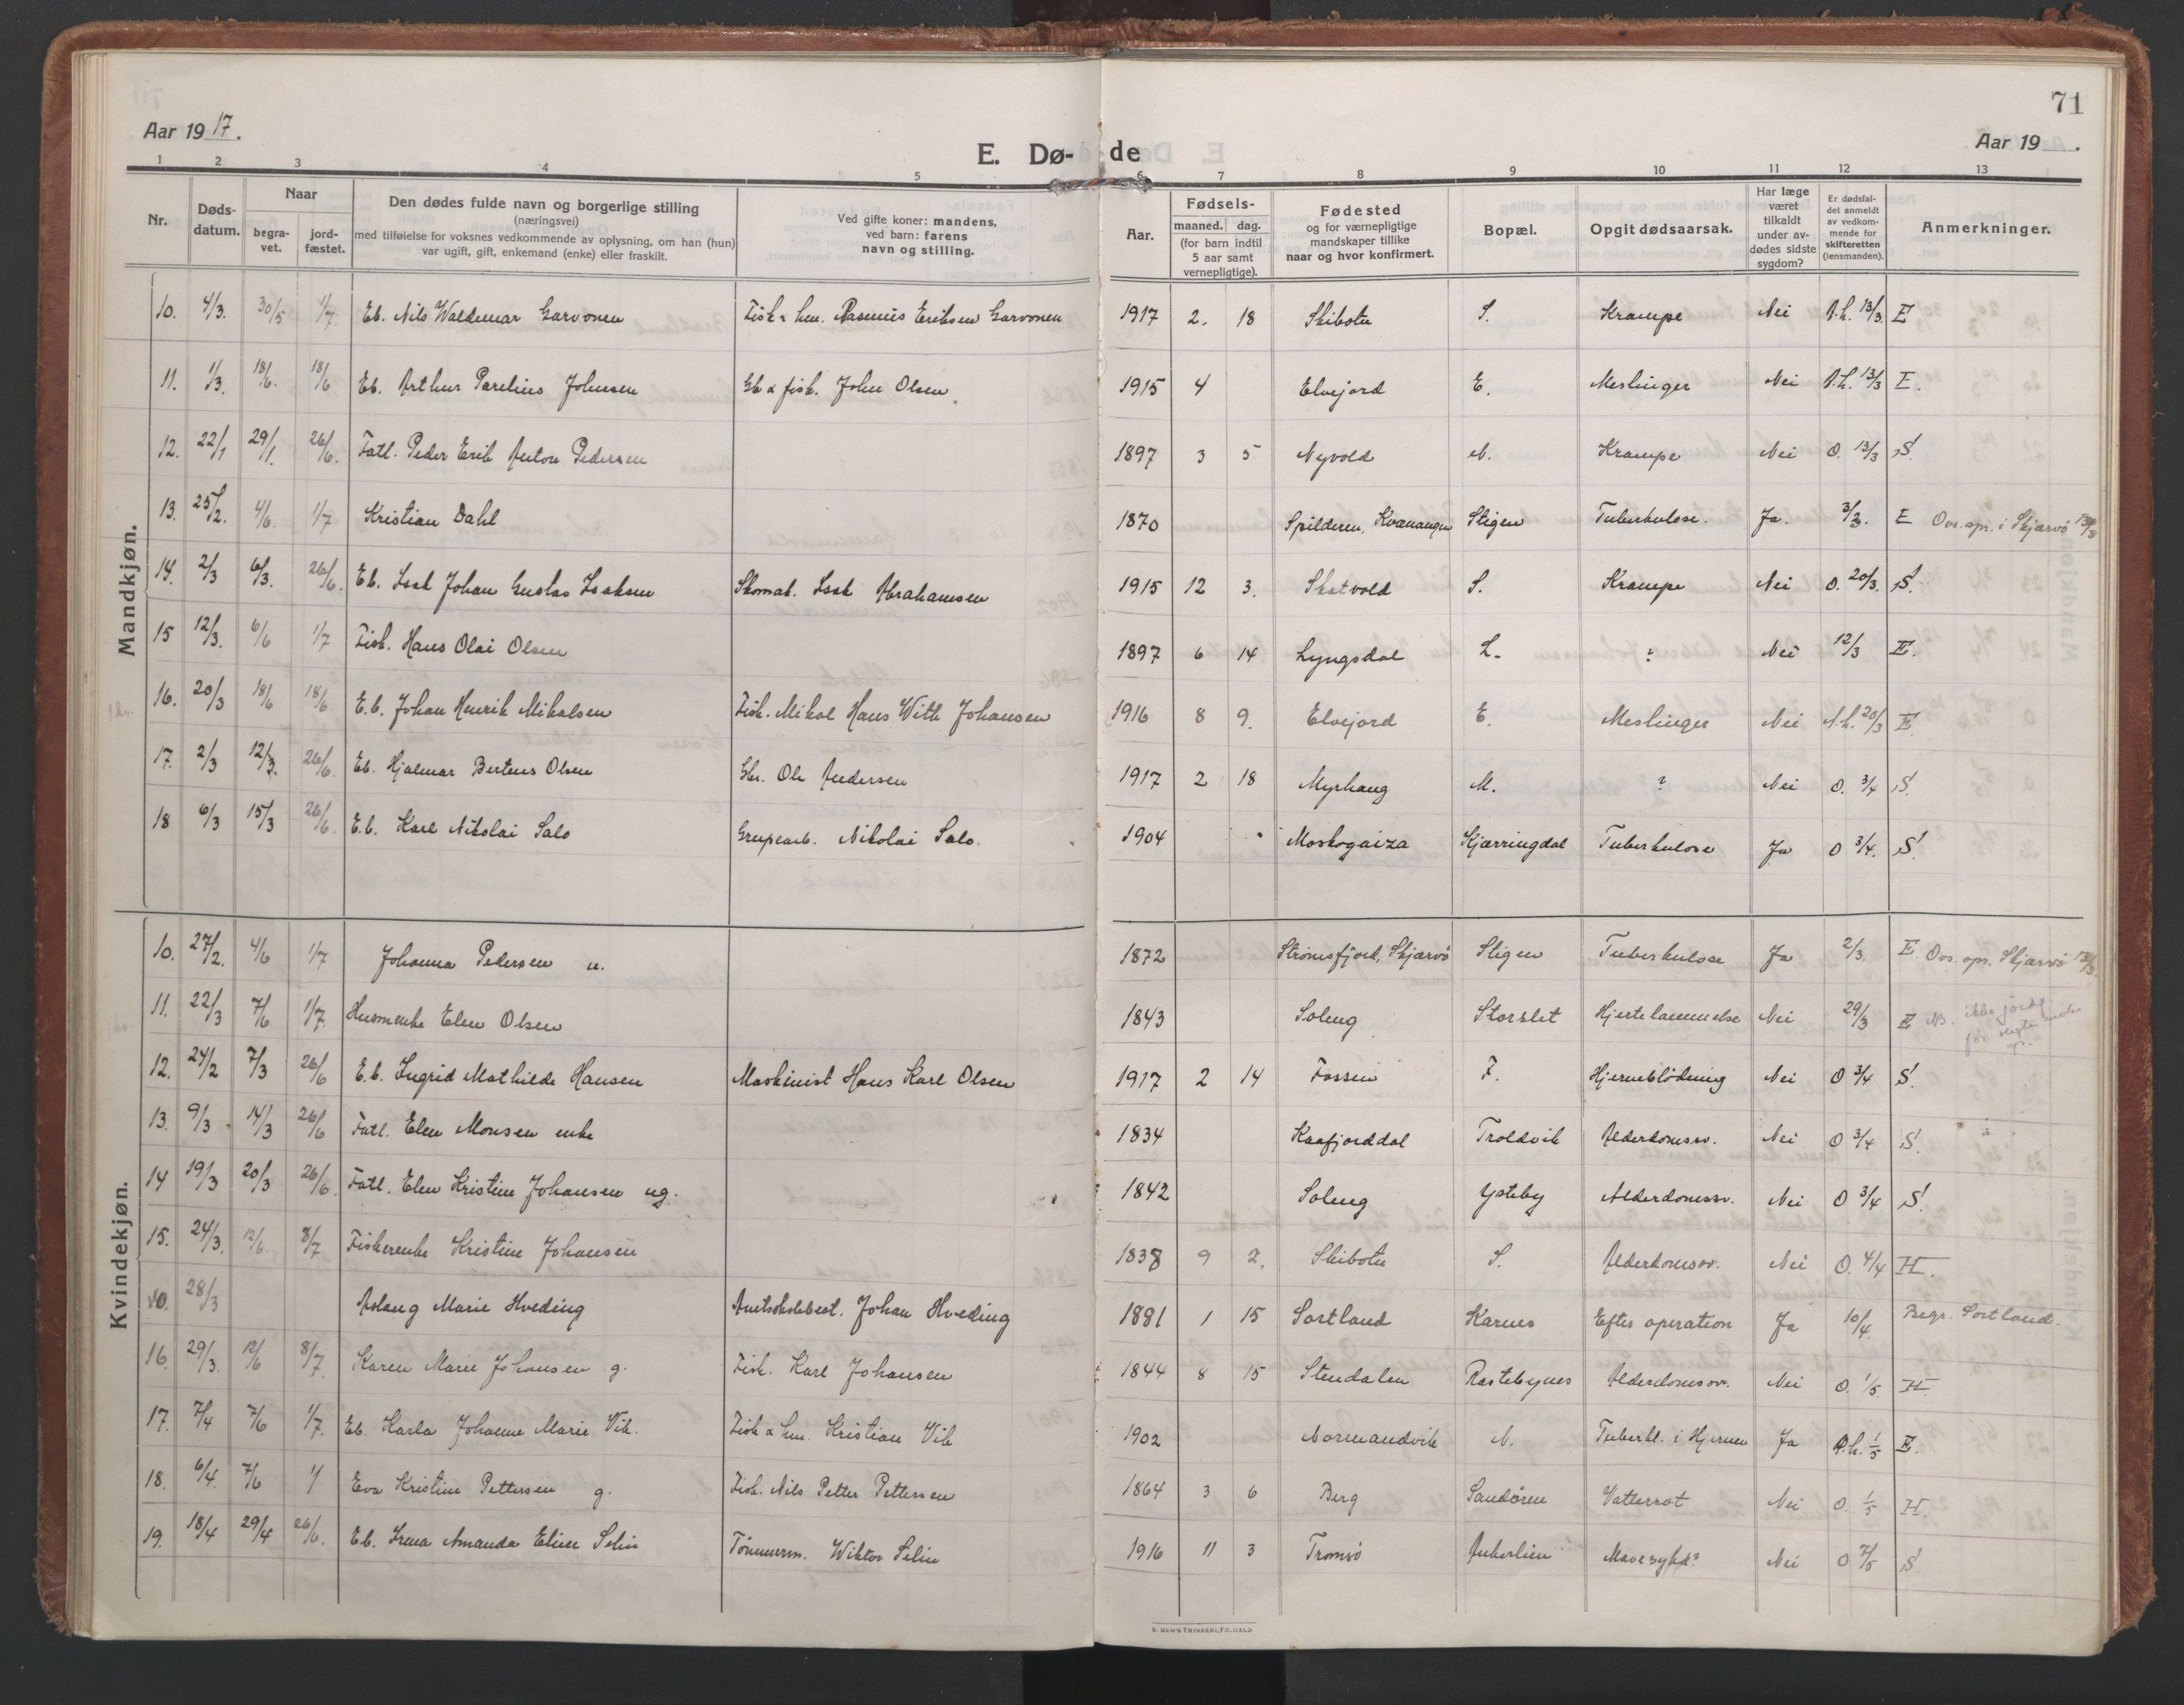 71
Aar 1917.
Aar 19 .
E. Dø- de
1 2 3 4 5 6 7 8 9 10 11 12 13
Nr.
Døds-
datum.
Naar
begra-
vet.
jord-
fæstet.
Den dødes fulde navn og borgerlige stilling
(næringsvei)
med tilføielse for voksnes vedkommende av oplysning, om han (hun)
var ugift, gift, enkemand (enke) eller fraskilt.
Ved gifte koner: mandens,
ved barn: farens
navn og stilling.
Aar.
Fødsels-
maaned. dag.
(for barn indtil
5 aar samt
vernepligtige).
Fødested
og for værnepligtige
mandskaper tillike
naar og hvor konfirmert.
Bopæl.
Opgit dødsaarsak.
Har læge
været
tilkaldt
under av-
dødes sidste
sygdom?
Er dødsfal-
det anmeldt
av vedkom-
mende for
skifteretten
(lensmanden).
Anmerkninger.
Mandkjøn.
10. 4/3. 30/5 1/7. Eb. Nils Waldemar Garvonen Fisk & hm. Rasmus Eriksen Garvonen 1917 2. 18 Skibotn S. Krampe Nei A.h. 13/3. E
11. 1/3. 18/6. 18/6 Eb. Arthur Parelius Johnsen Gb & fisk. John Olsen 1915 4 Elvejord E. Meslinger Nei A.h. 13/3 E.
12. 22/1 29/1. 26/6. Fatl. Peder Erik Anton Pedersen 1897 3 5 Nyvold N. Krampe Nei O. 13/3 S.
13. 25/2. 4/6. 1/7 Kristian Dahl 1870 Spilderen, Kvænangen Stigen Tuberkulose. Ja. 3/3. E Ovs. opr. i Skjærvø 13/3
14. 2/3 6/3. 26/6. Eb. Isak Johan Gustav Isaksen Skomak. Isak Abrahamsen 1915 12 3. Skatvold S. Krampe Nei O. 20/3. S.
15 12/3. 6/6 1/7 Fisk. Hans Olai Olsen 1897 6 14 Lyngsdal L. ? Nei 12/3 E.
16. 20/3 18/6 18/6. E.b. Johan Henrik Mikalsen Fisk. Mikal Hans With Johansen 1916 8 9. Elvejord E. Meslinger Nei A.h. 20/3 E
17. 2/3 12/3. 26/6. Eb. Hjalmar Berteus Olsen Gbr. Ole Andersen 1917 2 18 Myrhaug M. ? Nei O. 3/4 S.
18 6/3 15/3 26/6. E.b. Karl Nikolai Salo Grupearb. Nikolai Salo. 1904 Moskogaiza Kjærringdal Tuberkulose Ja O 3/4. S.
Kvindekjøn.
10. 27/2. 4/6 1/7 Johanna Pedersen u. 1872 Strømsfjord, Skjærvø Stigen Tuberkulose Ja 2/3. E Ovs. opr. Skjærvø 13/3
11. 22/3 7/6 1/7. Husmenke Elen Olsen 1843 Soleng Storslet Hjertelammelse Nei 29/3 E NB. ikke jordf. før
12. 24/2 7/3 26/6 E.b. Ingrid Mathilde Hansen Maskinist Hans Karl Olsen 1917 2 14 Fossen F. Hjerneblødning Nei O 3/4 S.
13. 9/3 14/3 26/6 Fatl. Elen Monsen enke 1834 Kaafjorddal Troldvik Alderdomssv. Nei O 3/4 S.
14 19/3 20/3 26/6. Fatl. Elen Kristine Johansen ug. 1842 Soleng Ysteby Alderdomssv. Nei O 3/4 S.
15. 24/3. 12/6. 8/7 Fiskerenke Kristine Johansen 1838 9 2. Skibotn S. Alderdomssv. Nei O. 4/4 H.
10. 28/3 Aslaug Marie Hveding Amtsskolebest. Johan Hveding 1881 1 15 Sortland Karnes Efter operation Ja 10/4. Begr. Sortland.
16. 29/3. 12/6 8/7. Karen Marie Johansen g. Fisk. Karl Johansen 1844 8 15 Stendalen Rastebynes Alderdomssv. Nei O. 1/5. H.
17. 7/4 7/6 1/7. Eb. Karla Johanne Marie Vik. Fisk & hm. Kristian Vik 1902 Normandvik N. Tuberkl. i Hjernen Ja A.h. 1/5 E.
18. 6/4. 7/6 1/ Eva Kristine Pettersen g. Fisk. Nils Petter Pettersen 1864 3 6 Berg Sandøren Vattersot Nei O. 1/5 H.
19. 18/4 29/4 26/6. Eb. Irena Amanda Eline Selin Tømmerm. Wiktor Selin 1916 11 3 Tromsø Ankerlien Mavesyke? Nei O 7/5 S.